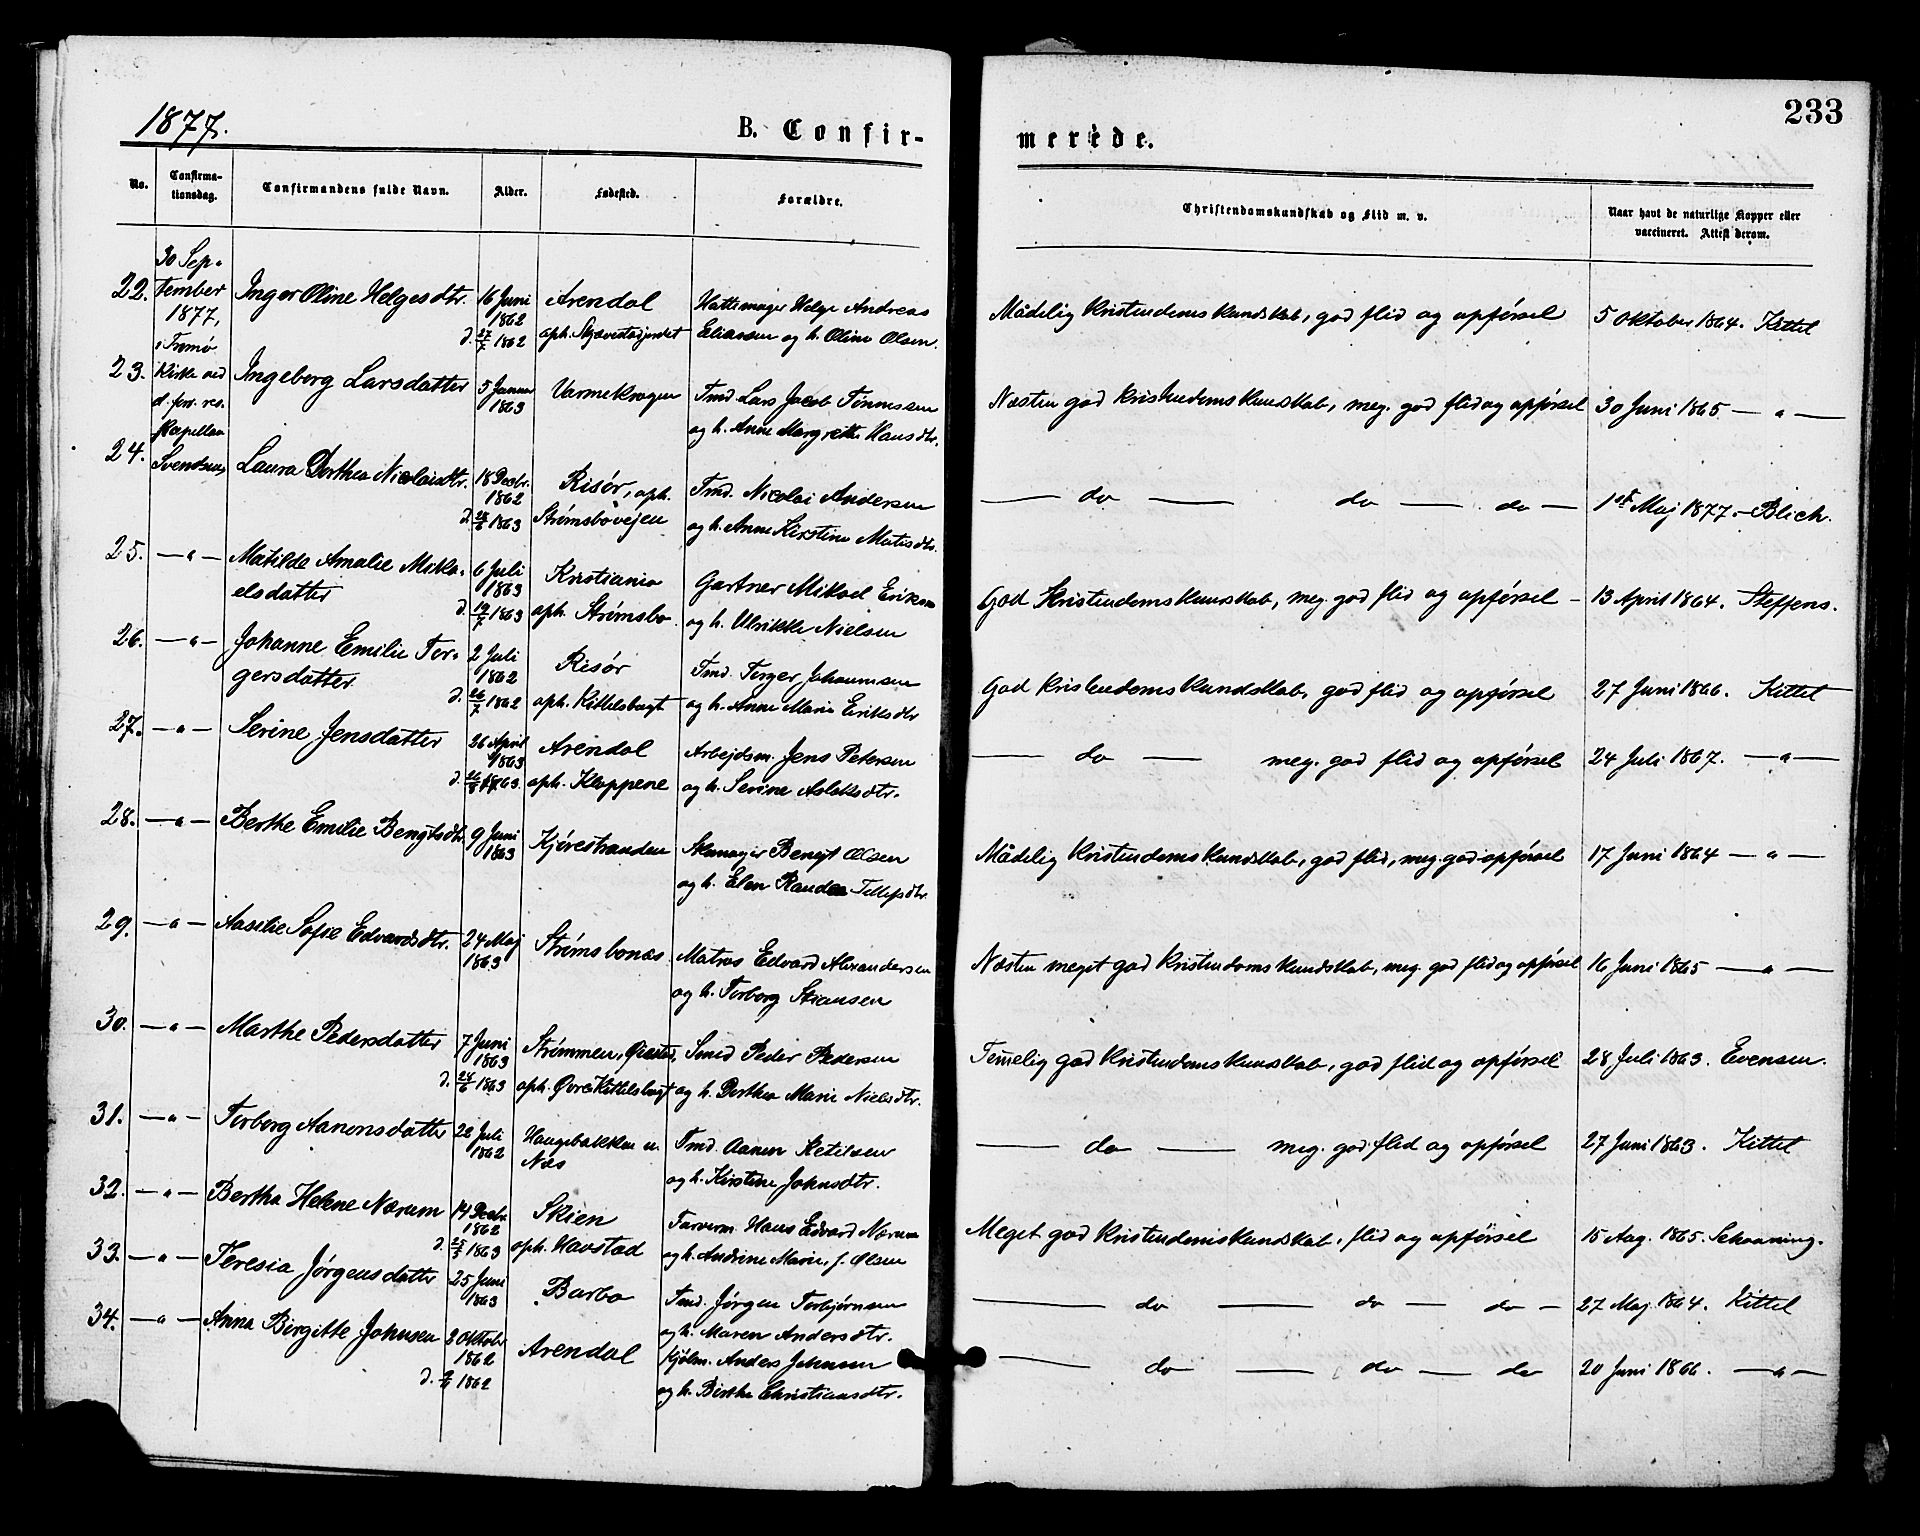 1877.
B. Confir-
merede.
233
No.
Confirma-
tionsdag.
Confirmandens fulde Navn.
Alder.
Fødested.
Forældre.
Christendomskundskab og Flid m. v.
Naar havt de naturlige Kopper eller
vaccineret. Attest derom.
30 Sep-
tember
1877,
i Tromø
Kirke ved
d. pers. res.
Kapellan
Svendsen,
22. Inger Oline Helgesdtr. 16 Juni
1862
d. 27/7 1862
Arendal
oph. Skjævestadjordet
Hattemager Helge Andreas
Eliassen og h. Oline Olsen.
Mådelig kristendomskundskab, god flid og opførsel 5 Oktober 1864. Kittel
23. Ingeborg Larsdatter 5 Januar
1863
Varmekrogen
Tmd. Lars Jacob Tønnessen
og h. Anne Margrethe Hansdtr.
Næsten god kristendomskunskab, meg. god flid og opførsel 30 Juni 1865 — " —
24. Laura Dorthea Nicolaisdtr. 18 Decbr.
1862
d. 28/6 1863
Risør, oph.
Strømsbovejen
Tmd. Nicolai Andersen
og h. Anne Kirstine Matisdtr.
— do — do — do — 1st Maj 1877. — Blich.
25. — " — Matilde Amalie Mika-
elsdatter
6 Juli
1863
d. 19/7 1863
Kristiania
oph. Strømsbo.
Gartner Mikael Eriksen
og h. Ulrikke Nielsen
God Kristendomskunskab, meg. god flid og opførsel — 13 April 1864. Steffens.
26. — " — Johanne Emilie Tor-
gersdatter
2 Juli
1862
d. 26/7 1862
Risør
oph. Kittelsbugt
Tmd. Torger Johannesen
og h. Anne Marie Eriksdtr
God kristendomskundskab, god flid og opførsel 27 Juni 1866. Kittel
27. — " — Serine Jensdatter 26 April
1863
d. 1863.
Arendal
oph. Kloppene
Arbejdsm. Jens Petersen
og h. Serine Aslaksdtr.
— do — meg. god flid og opførsel 24 Juli 1867. — " —
28. — " — Berthe Emilie Bengtsdtr 9 Juni
1863
Kjørestranden
Skomager Bengt Olsen
og h. Elen Randea Tellefsdtr.
Mådelig kristendomskundskab, god flid, meg. god opførsel 17 Juni 1864 — " —
29. — " — Aasilie Sofie Edvardsdtr. 24 Maj
1863
Strømsbonæs.
Matros Edvard Alexandersen
og h. Torborg Stiansen
Næsten meget god kristendomskundskab, meg. god flid og opførsel 16 Juni 1865 — " —
30. — " — Marthe Pedersdatter 7 Juni
1863
d. 24/6 1863
Strømmen, Øiestad,
oph. Øvre Kittelsbugt
Smed Peder Pedersen
og h. Dorthea Marie Nielsdtr.
Temelig god kristendomskunskab, god flid og opførsel 28 Juli 1863. Evensen.
31. — " — Torborg Aanonsdatter 22 Juli
1862
Haugebakken u.
Næs
Tmd. Aanon Ketilsen
og h. Kirstine Johnsdtr.
— do — meg. god flid og opførsel 27 Juni 1863. Kittel
32. — " — Bertha Helene Nærum 14 Decbr.
1862
d. 25/5 1863
Skien
oph. Havstad
Farverm. Hans Edvard Nærum
og h. Andrine Marie, f. Olsen
Meget god kristendomskundskab, flid og opførsel 15 Aug. 1865. Schonning.
33. — " — Teresia Jørgensdatter 25 Juni
1863
Barbo
Tmd. Jørgen Torbjørnsen
og h. Maren Andersdtr.
— do — do — do — 27 Maj 1864. Kittel
34. — " — Anna Birgitte Johnsen 2 Oktobr
1862
d. 1862
Arendal
Kjølm. Anders Johnsen
og h. Birthe Christiansdtr.
— do — do — do 20 Juni 1866. — " —